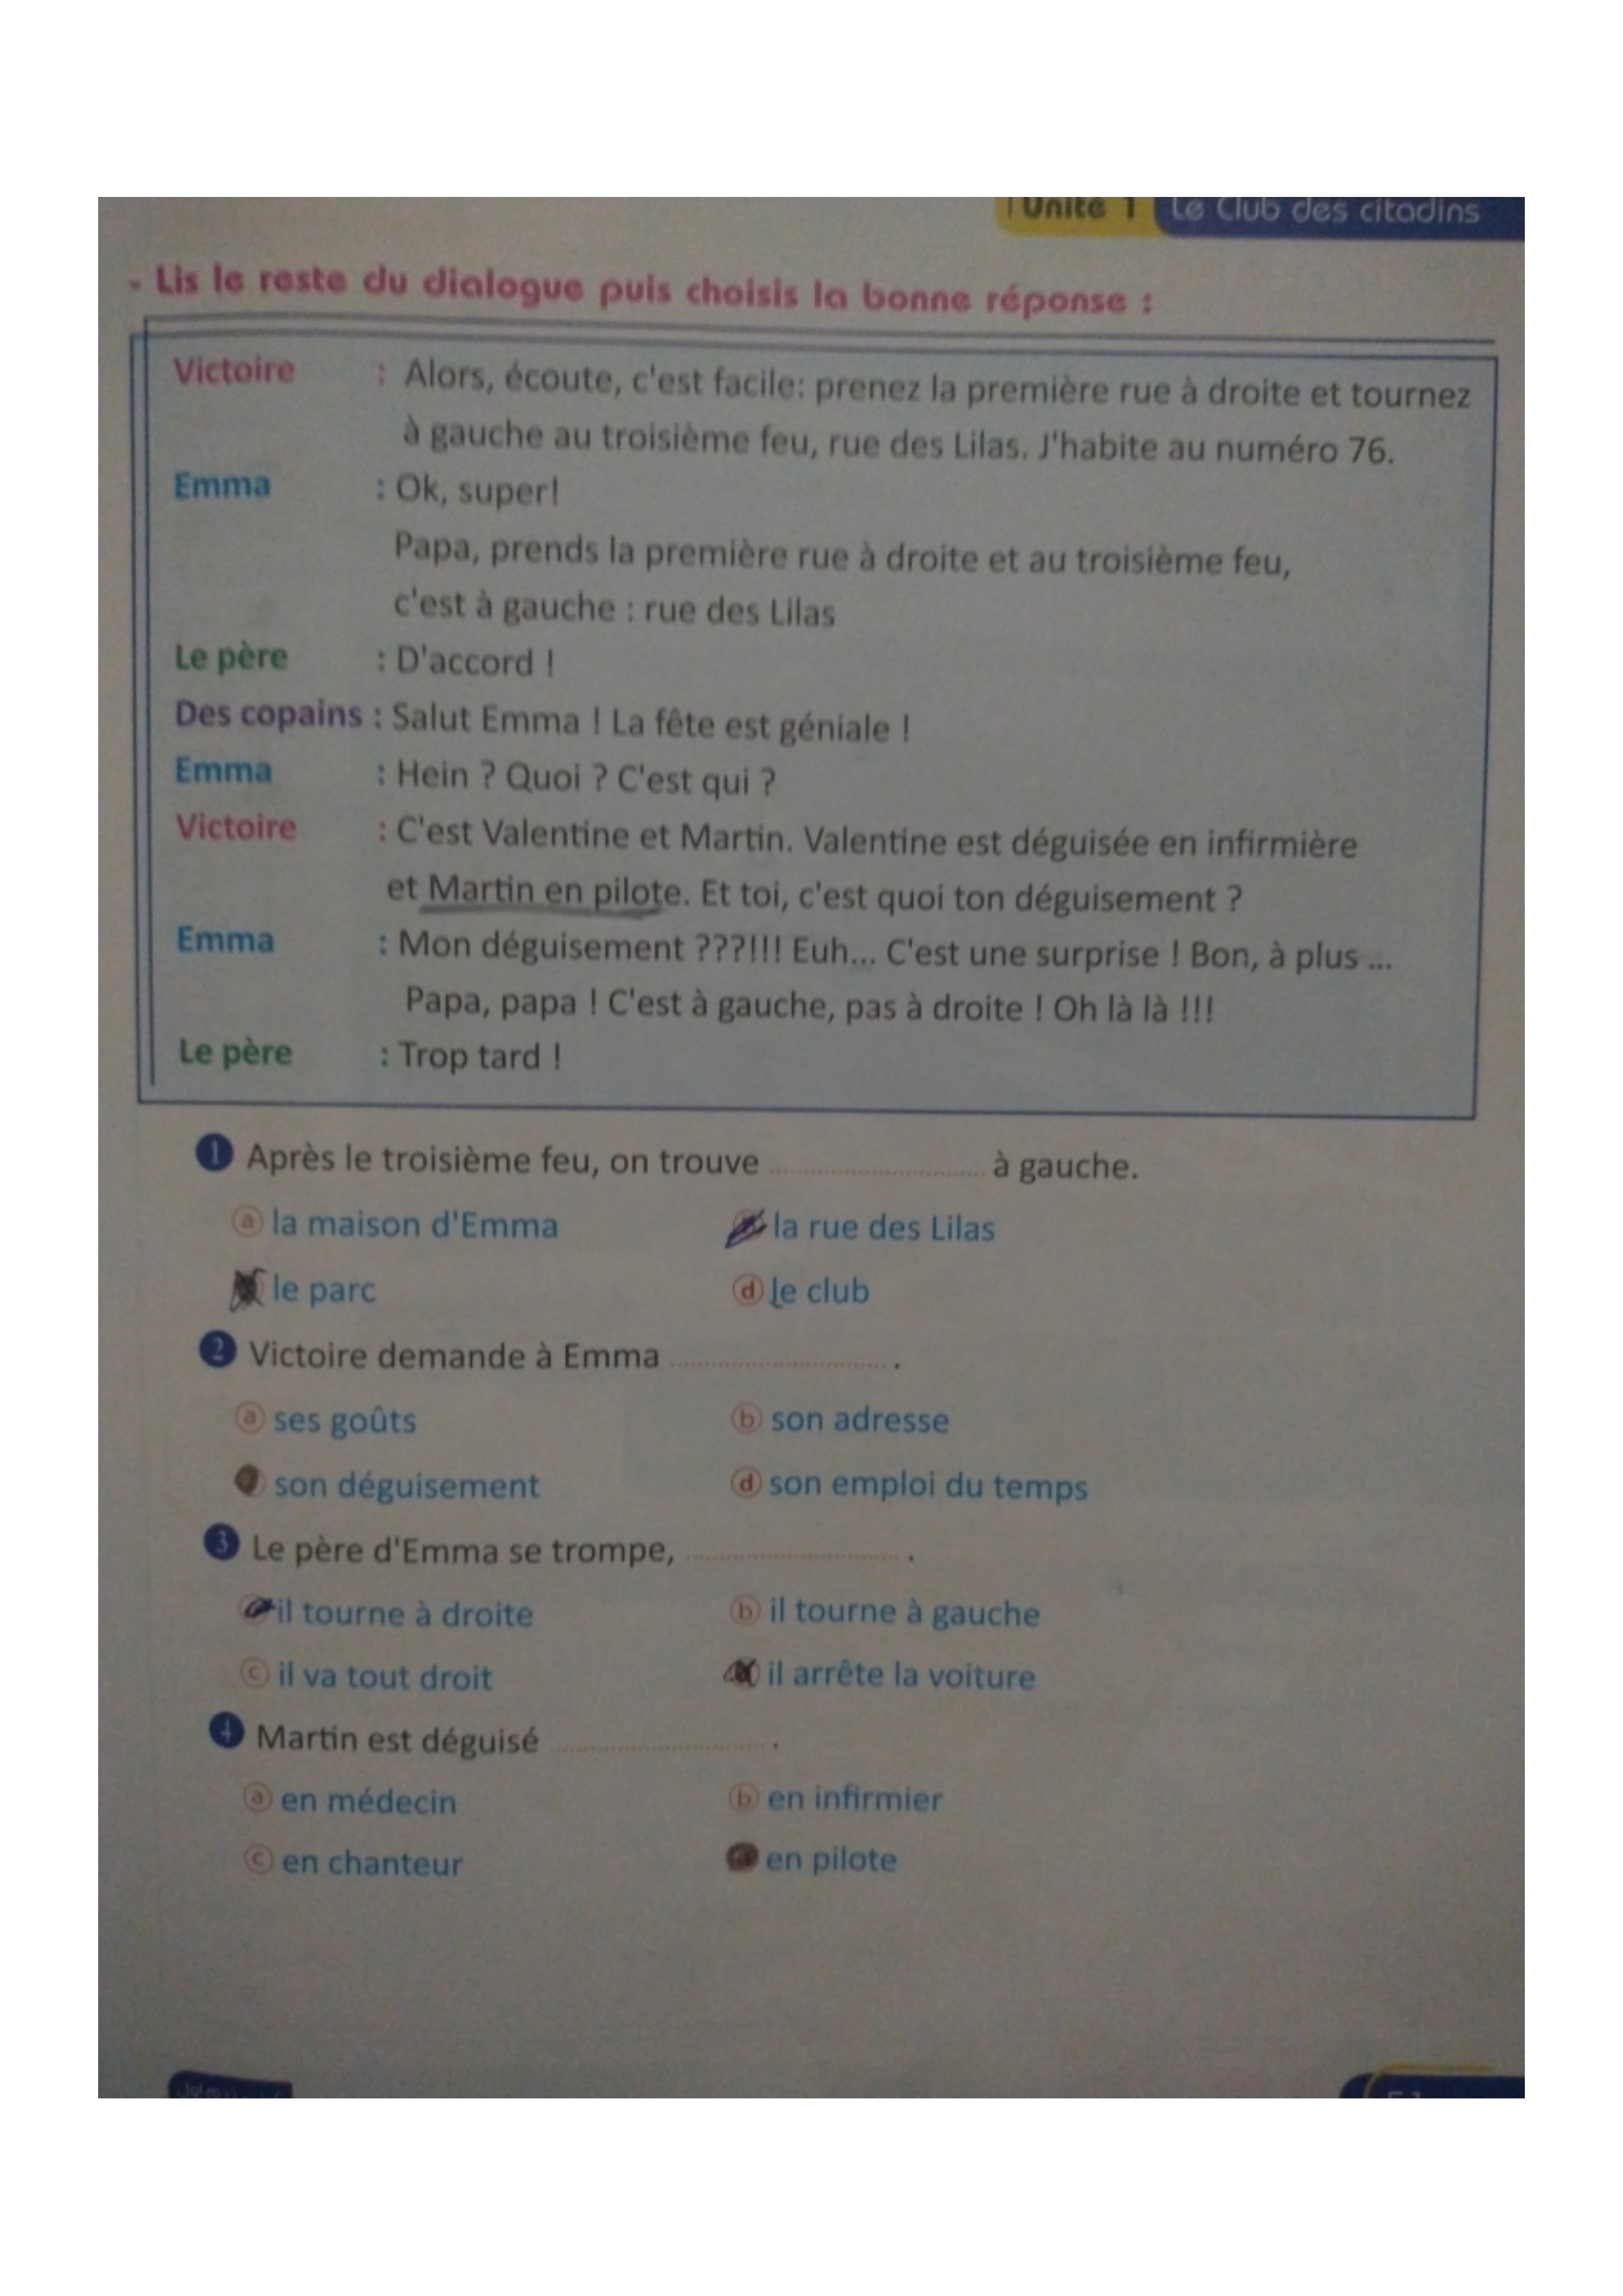 Unité 1 Le Club des citadins
- Lis le reste du dialogue puis choisis la bonne réponse :
Victoire : Alors, écoute, c'est facile: prenez la première rue à droite et tournez
à gauche au troisième feu, rue des Lilas. J'habite au numéro 76.
Emma : Ok, super!
Papa, prends la première rue à droite et au troisième feu,
c'est à gauche : rue des Lilas
Le père : D'accord !
Des copains : Salut Emma ! La fête est géniale !
Emma : Hein ? Quoi ? C'est qui ?
Victoire : C'est Valentine et Martin. Valentine est déguisée en infirmière
et Martin en pilote. Et toi, c'est quoi ton déguisement ?
Emma : Mon déguisement ???!!! Euh... C'est une surprise ! Bon, à plus ...
Papa, papa ! C'est à gauche, pas à droite ! Oh là là !!!
Le père : Trop tard !
1 Après le troisième feu, on trouve ........................ à gauche.
a la maison d'Emma la rue des Lilas
le parc d le club
2 Victoire demande à Emma ........................ .
a ses goûts b son adresse
son déguisement d son emploi du temps
3 Le père d'Emma se trompe, ........................ .
il tourne à droite b il tourne à gauche
c il va tout droit il arrête la voiture
4 Martin est déguisé ........................ .
a en médecin b en infirmier
c en chanteur en pilote